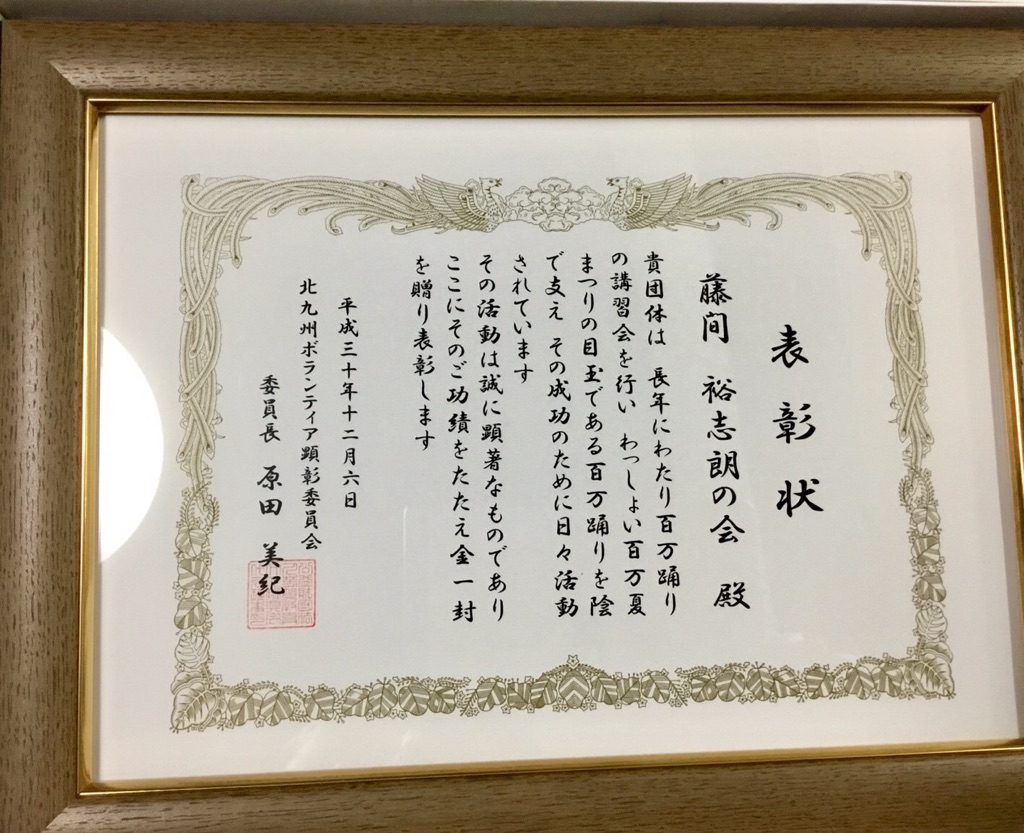 表彰状
藤間 裕志朗の会 殿
貴団体は 長年にわたり百万踊り
の講習会を行い わっしょい百万夏
まつりの目玉である百万踊りを陰
で支え その成功のために日々活動
されています
その活動は誠に顕著なものであり
ここにそのご功績をたたえ金一封
を贈り表彰します
平成三十年十二月六日
北九州ボランティア顕彰委員会
委員長 原田 美紀